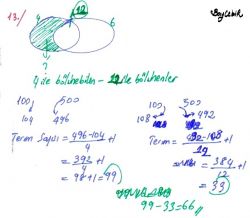 13./
4
12
6
?
4 ile bölünebilen - 12 ile bölünenler
100 500
104 496
Term Sayısı = 496-104 / 4 + 1
= 392 / 4 + 1
= 98 + 1 = 99
100 500
108 492
Term = 492-108 / 12 + 1
= 384 / 12 + 1
= 33
99-33=66 //